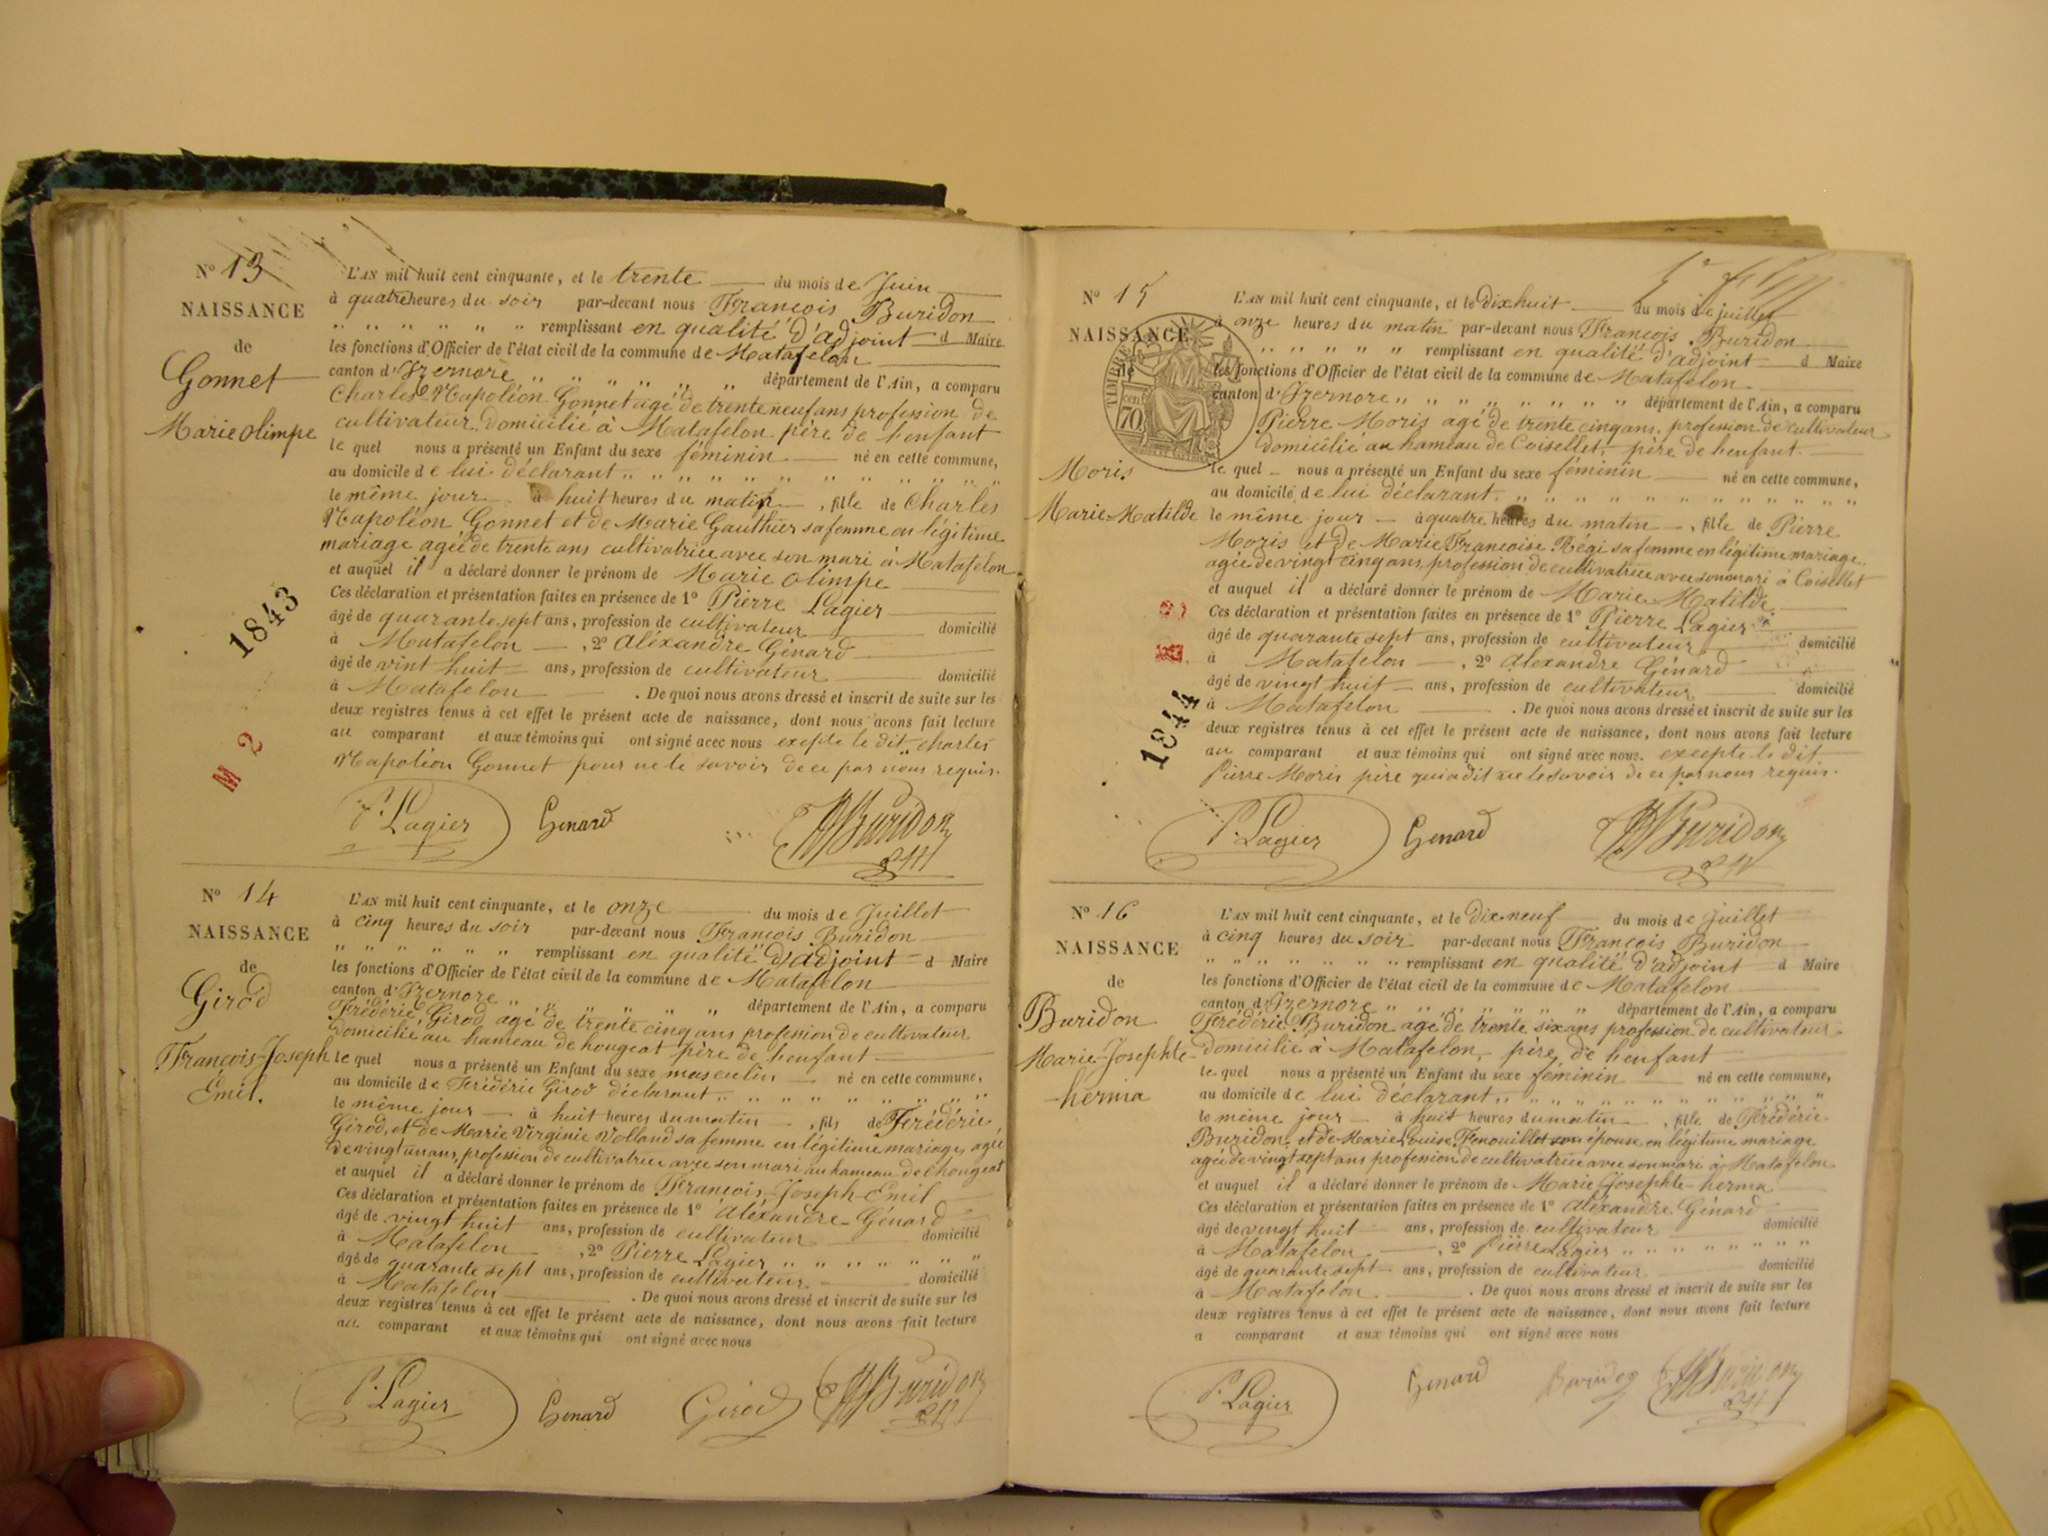 N° 13
NAISSANCE
de
Gonnet
Marie olimpe
1843
M 2
L'AN mil huit cent cinquante, et le trente du mois de Juin
à quatre heures du soir par-devant nous François Buridon
" " " " " " remplissant en qualité d'adjoint d Maire
les fonctions d'Officier de l'état civil de la commune de Matafelon
canton d'Izernore " " " " " " département de l'Ain, a comparu
Charles Napoléon Gonnet agé de trente neuf ans profession de
cultivateur, domicilié à Matafelon père de l'enfant
le quel nous a présenté un Enfant du sexe féminin né en cette commune,
au domicile de lui déclarant " " " " " " " " " " "
le même jour à huit heures du matin, fille de Charles
Napoléon Gonnet et de Marie Gauthier sa femme en légitime
mariage agée de trente ans cultivatrice avec son mari à Matafelon
et auquel il a déclaré donner le prénom de Marie olimpe
Ces déclaration et présentation faites en présence de 1° Pierre Lagier
âgé de quarante sept ans, profession de cultivateur domicilié
à Matafelon, 2° Aléxandre Génard
âgé de vint huit ans, profession de cultivateur domicilié
à Matafelon. De quoi nous avons dressé et inscrit de suite sur les
deux registres tenus à cet effet le présent acte de naissance, dont nous avons fait lecture
au comparant et aux témoins qui ont signé avec nous exepte le dit charles
Napoléon Gonnet pour ne le savoir de ce par nous requis.
P. Lagier Genard Buridon adj
N° 14
NAISSANCE
de
Girod
François-Joseph
Emil.
L'AN mil huit cent cinquante, et le onze du mois de Juillet
à cinq heures du soir par-devant nous François Buridon
" " " " " " remplissant en qualité d'adjoint d Maire
les fonctions d'Officier de l'état civil de la commune de Matafelon
canton d'Izernore " " " " " " département de l'Ain, a comparu
Frédéric Girod agé de trente cinq ans profession de cultivateur
domicilié au hameau de hougeat père de l'enfant
le quel nous a présenté un Enfant du sexe masculin né en cette commune,
au domicile de Frédéric Girod déclarant " " " " " " " "
le même jour à huit heures du matin, fils de Frédéric
Girod, et de Marie Virginie Volland sa femme en légitime mariage, agée
de vingt un ans, profession de cultivatrice avec son mari au hameau de chougeat
et auquel il a déclaré donner le prénom de François-Joseph-Emil
Ces déclaration et présentation faites en présence de 1° Aléxandre Génard
âgé de vingt huit ans, profession de cultivateur domicilié
à Matafelon, 2° Pierre Lagier " " " " " "
âgé de quarante sept ans, profession de cultivateur domicilié
à Matafelon. De quoi nous avons dressé et inscrit de suite sur les
deux registres tenus à cet effet le présent acte de naissance, dont nous avons fait lecture
au comparant et aux témoins qui ont signé avec nous
P. Lagier Genard Girod Buridon adj
N° 15
NAISSANCE
de
Moris
Marie Matilde
1844
TIMBRE
70 cen
L'AN mil huit cent cinquante, et le dix huit du mois de juillet
à onze heures du matin par-devant nous François Buridon
" " " " " " remplissant en qualité d'adjoint d Maire
les fonctions d'Officier de l'état civil de la commune de Matafelon
canton d'Izernore " " " " " " " " département de l'Ain, a comparu
Pierre Moris agé de trente cinq ans, profession de cultivateur
domicilié au hameau de Coisellet, père de l'enfant
le quel nous a présenté un Enfant du sexe féminin né en cette commune,
au domicile de lui déclarant. " " " " " " " " " " "
le même jour à quatre heures du matin, fille de Pierre
Moris et de Marie Françoise Régi sa femme en légitime mariage
agée de vingt cinq ans, profession de cultivatrice avec son mari à Coisellet
et auquel il a déclaré donner le prénom de Marie Matilde
Ces déclaration et présentation faites en présence de 1° Pierre Lagier
âgé de quarante sept ans, profession de cultivateur domicilié
à Matafelon, 2° Alexandre Génard
âgé de vingt huit ans, profession de cultivateur domicilié
à Matafelon. De quoi nous avons dressé et inscrit de suite sur les
deux registres tenus à cet effet le présent acte de naissance, dont nous avons fait lecture
au comparant et aux témoins qui ont signé avec nous. excepte le dit
Pierre Moris père qui a dit ne le savoir de ce par nous requis.
P. Lagier Genard Buridon adj
N° 16
NAISSANCE
de
Buridon
Marie-Josephte
herma
L'AN mil huit cent cinquante, et le dix-neuf du mois de juillet
à cinq heures du soir par-devant nous François Buridon
" " " " " " " remplissant en qualité d'adjoint d Maire
les fonctions d'Officier de l'état civil de la commune de Matafelon
canton d'Izernore " " " " " " " département de l'Ain, a comparu
Frédéric Buridon agé de trente six ans profession de cultivateur
domicilié à Matafelon, père de l'enfant
le quel nous a présenté un Enfant du sexe féminin né en cette commune,
au domicile de lui déclarant " " " " " " " " " " "
le même jour à huit heures du matin, fille de Frédéric
Buridon, et de Marie Louise Fenouillet son épouse en légitime mariage
agée de vingt sept ans profession de cultivatrice avec son mari à Matafelon
et auquel il a déclaré donner le prénom de Marie Josephte-herma
Ces déclaration et présentation faites en présence de 1° Aléxandre Génard
âgé de vingt huit ans, profession de cultivateur domicilié
à Matafelon, 2° Pierre Lagier " " " " " " "
âgé de quarante sept ans, profession de cultivateur domicilié
à Matafelon. De quoi nous avons dressé et inscrit de suite sur les
deux registres tenus à cet effet le présent acte de naissance, dont nous avons fait lecture
a comparant et aux témoins qui ont signé avec nous
P. Lagier Genard Buridon Buridon adj